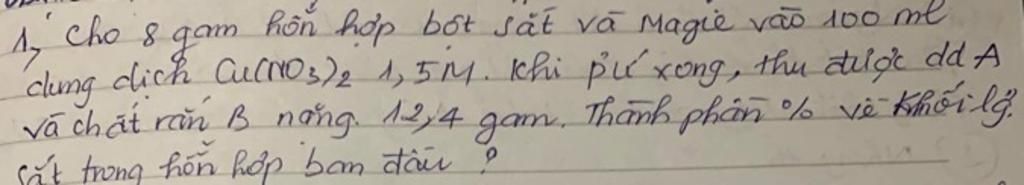 1, Cho 8 gam hỗn hợp bột sắt và Magie vào 100 ml
dung dịch Cu(NO3)2 1,5M. Khi pứ xong, thu được dd A
và chất rắn B nặng 12,4 gam. Thành phần % về khối lg.
sắt trong hỗn hợp ban đầu ?